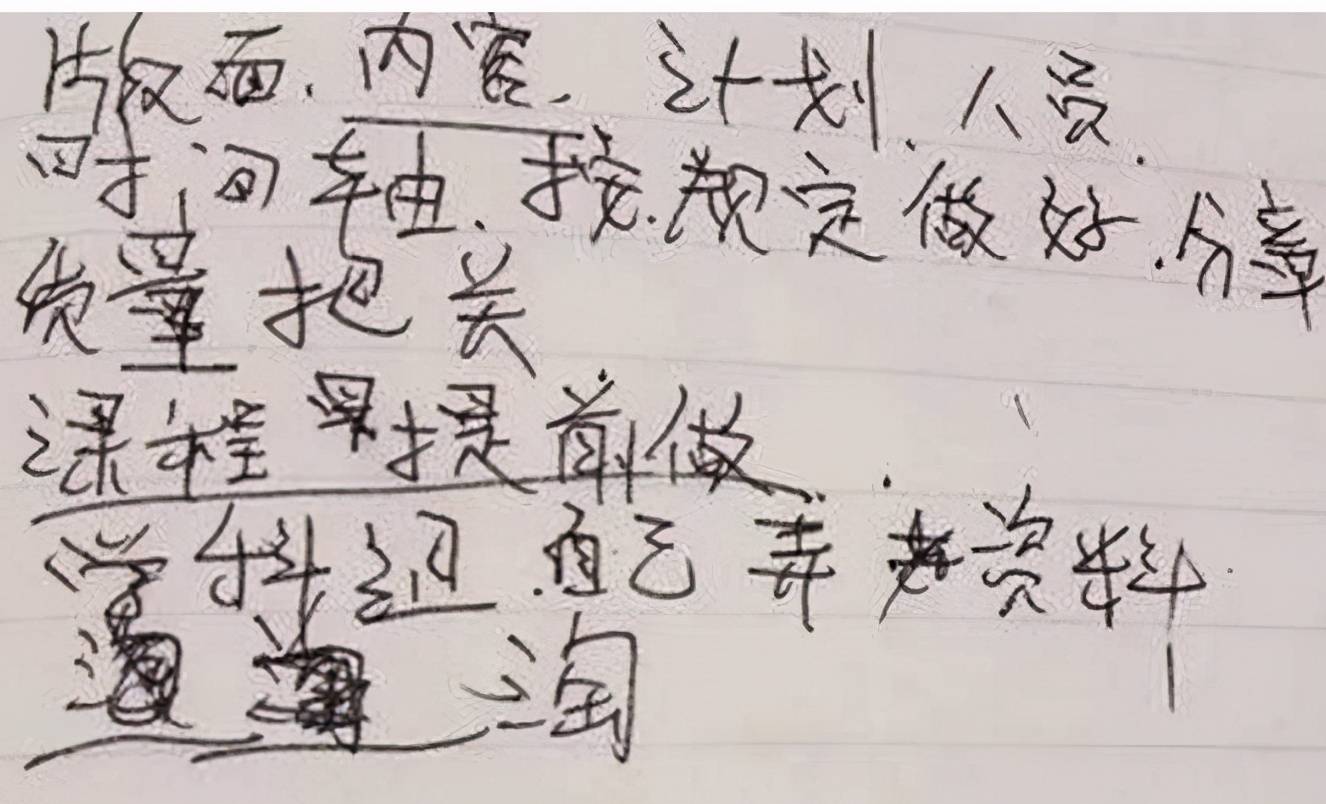 版面.内容.计划.人员.
时间轴.按规定做好.分章
质量把关
课程 提前做.
学科组.自己弄 资料
淘